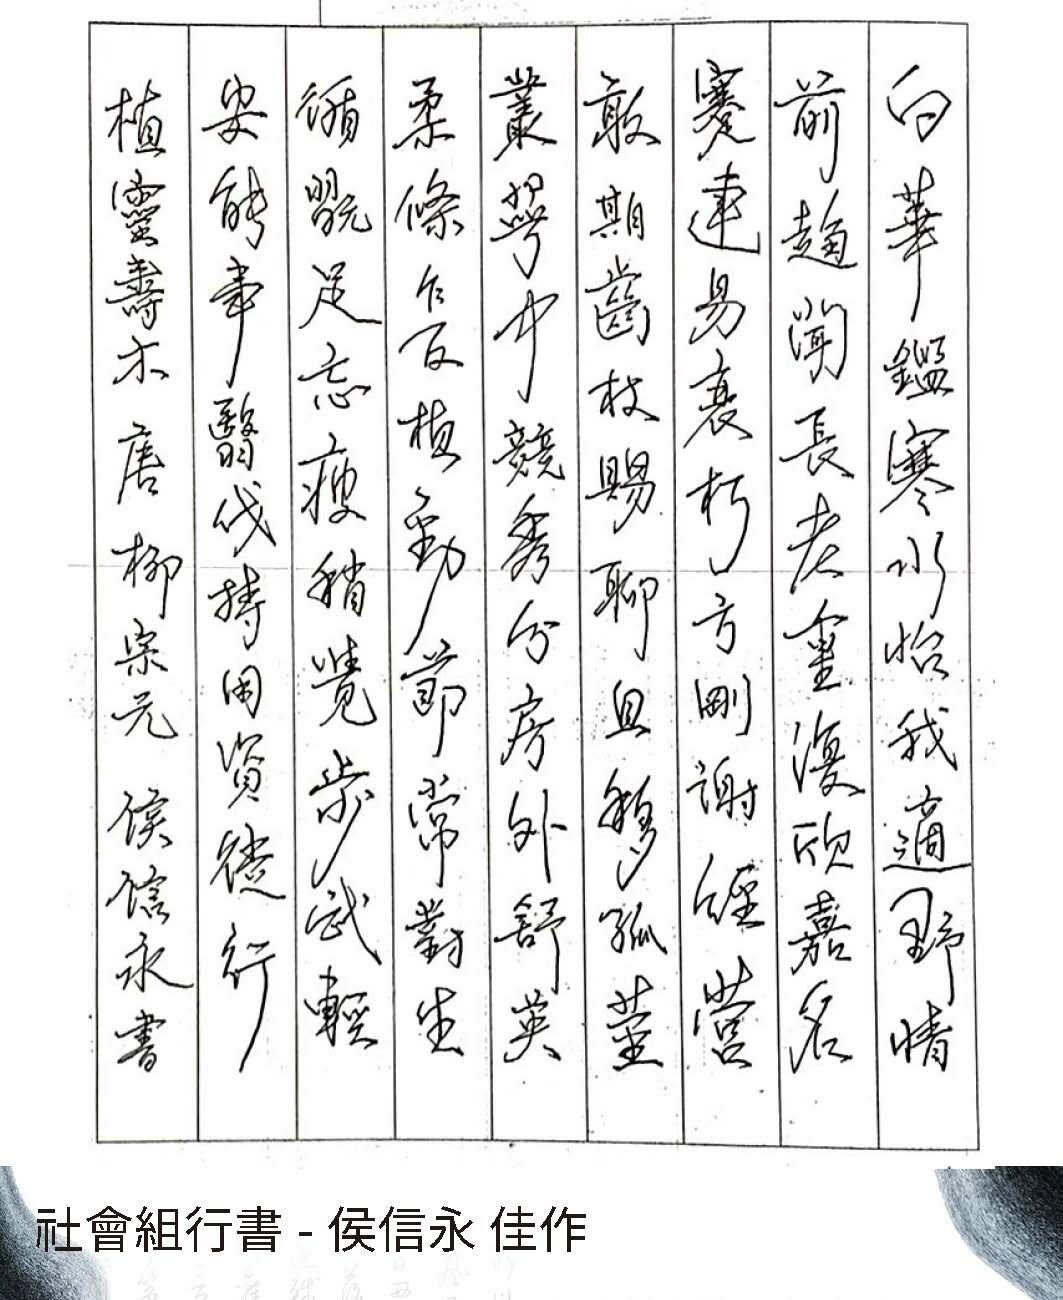 白華鑑寒水怡我適野情
前趨聞長老重復欣嘉名
蹇連易衰朽方剛謝經營
敢期齒杖賜聊且移孤莖
叢萼中競秀分房外舒英
柔條乍反植勁節常對生
循翫足忘瘦稍覺步武輕
安能事翳伐持用資徒行
植靈壽木 唐 柳宗元 侯信永書
社會組行書 - 侯信永 佳作